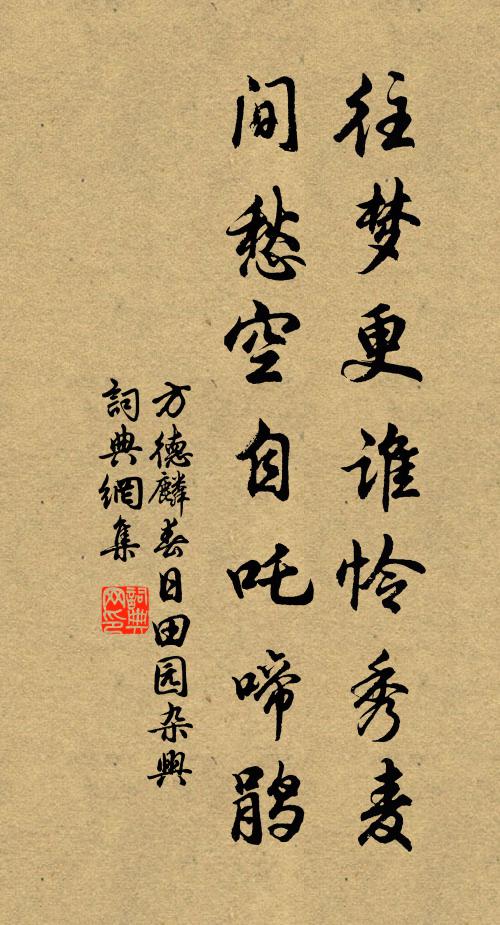 往梦更谁怜秀麦
间愁空自吒啼鹃
方德麟春日田园杂興
詞典網集
詞典网印